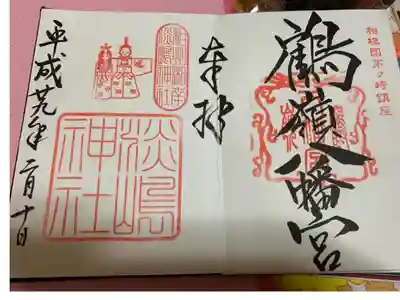 相模國茅ヶ崎鎮座
鶴嶺八幡宮
奉拝
淡嶋
神社
平成廿九年二月十日